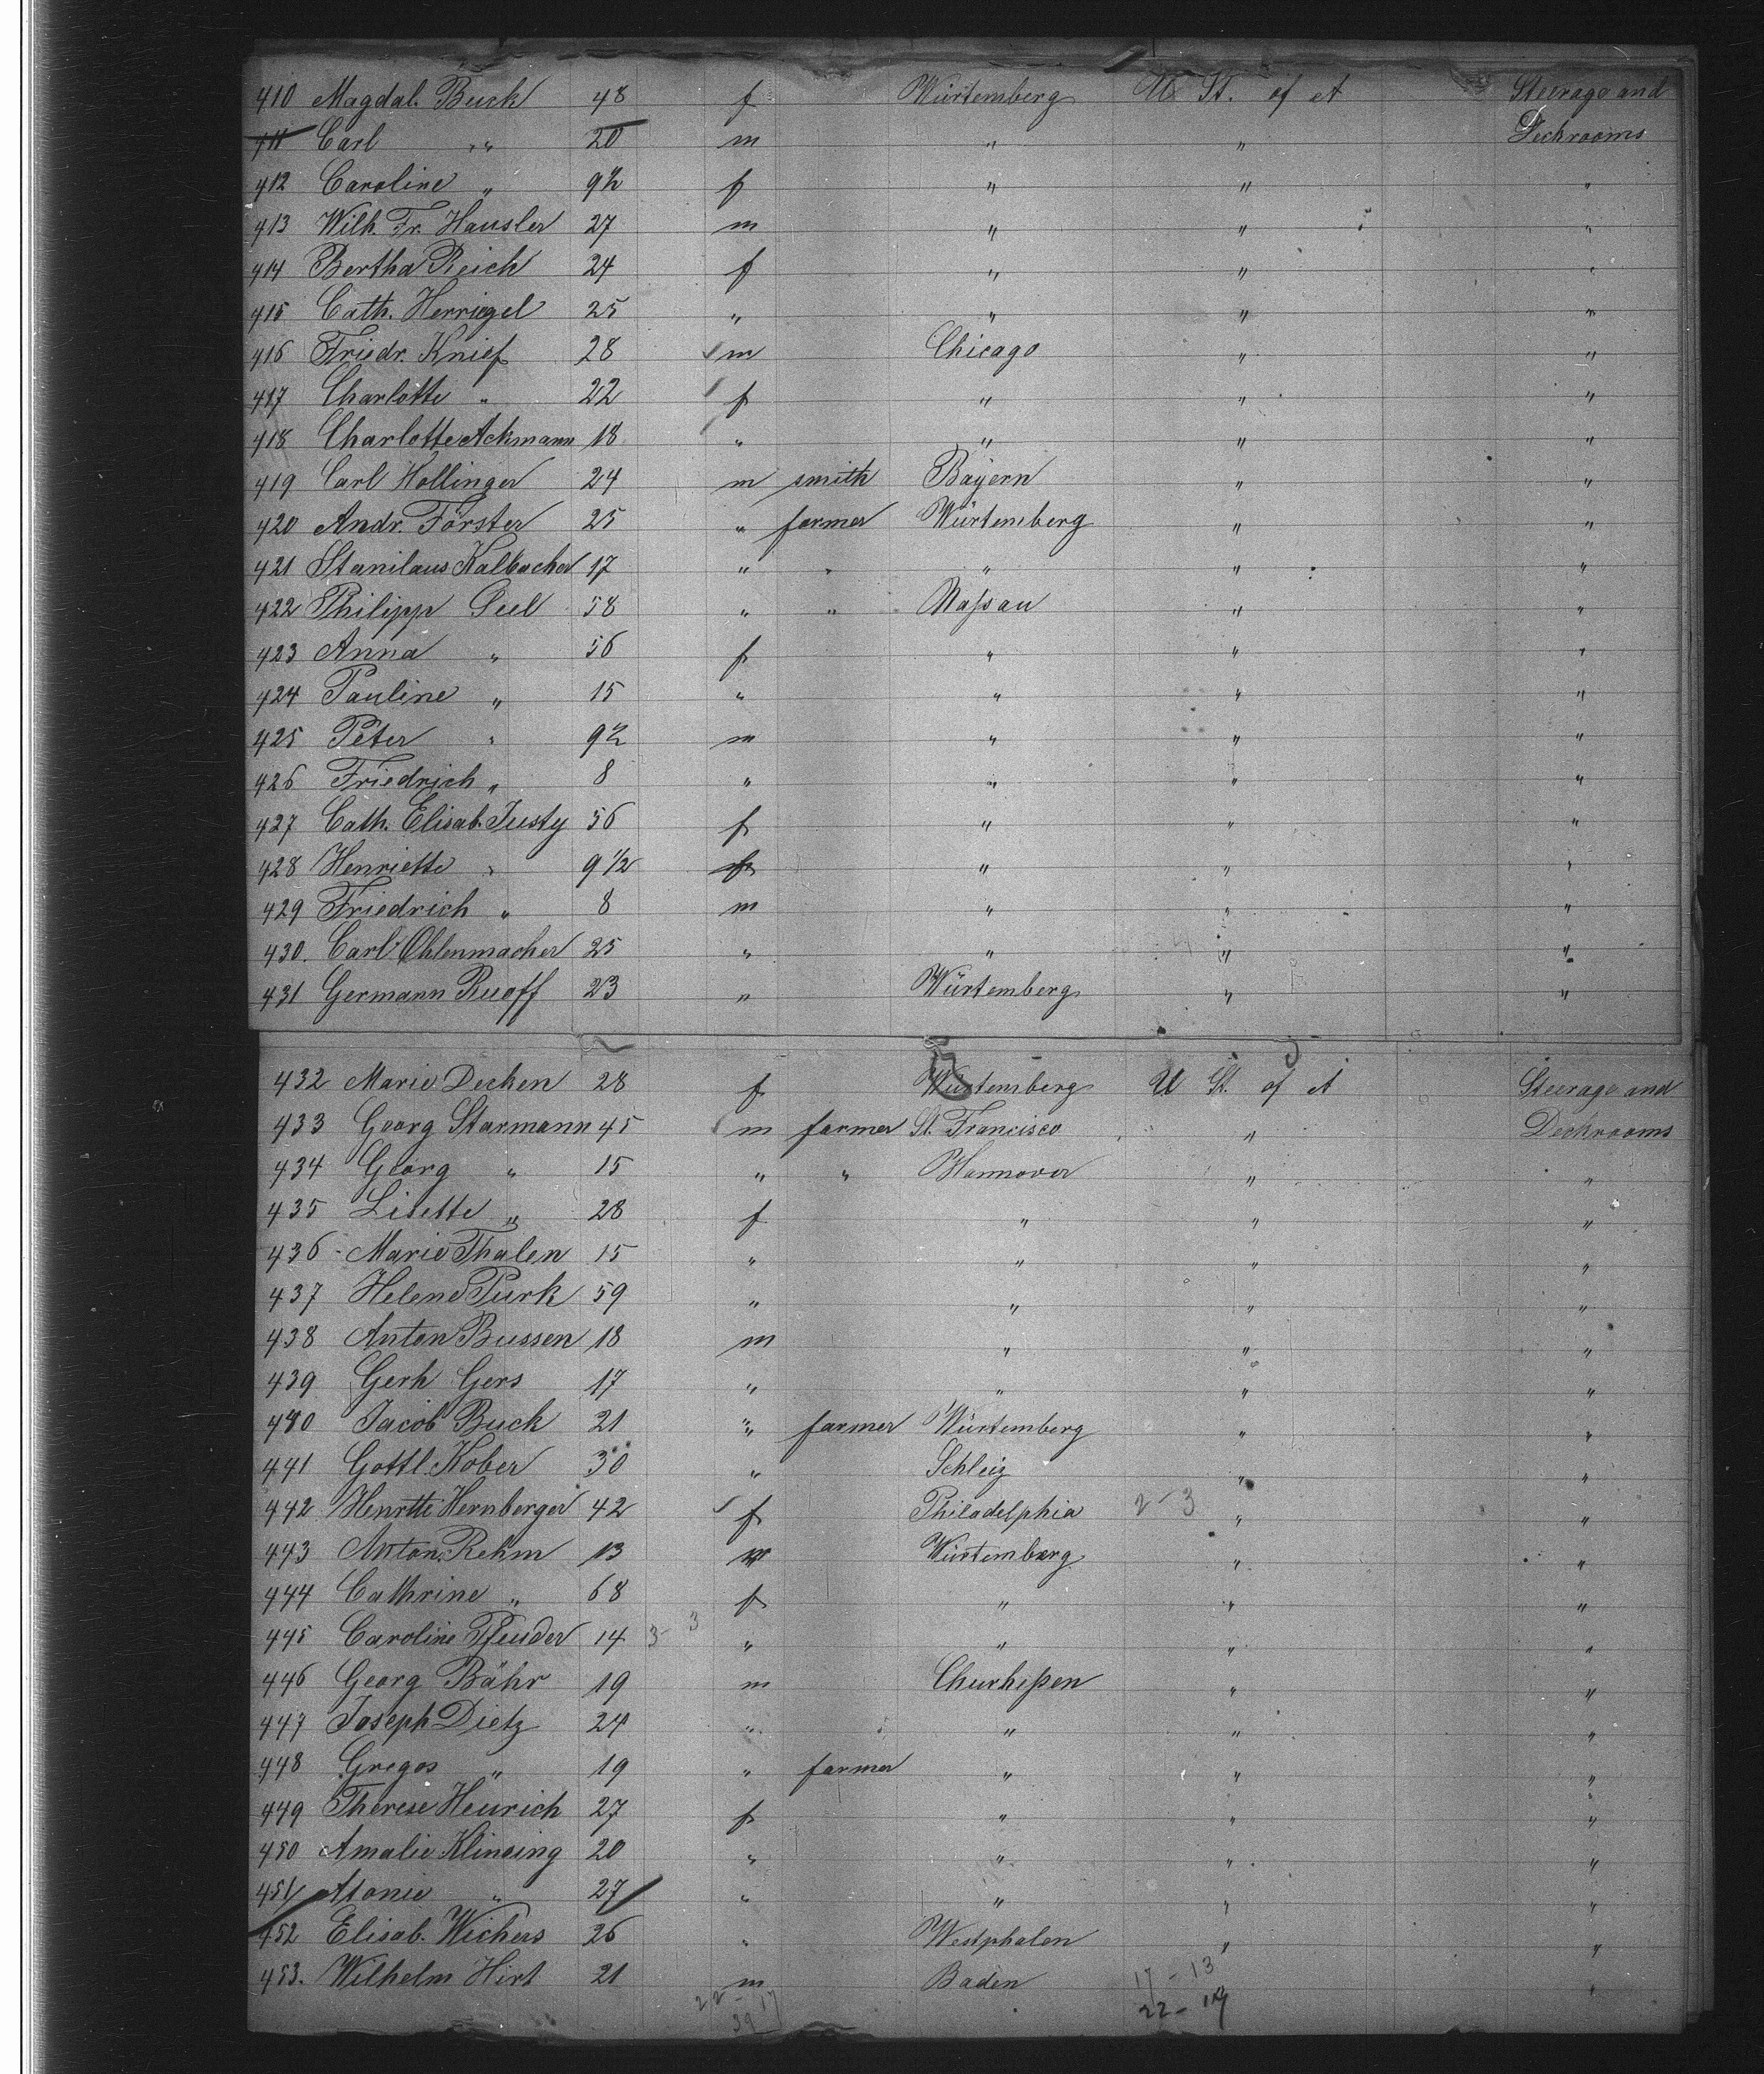 410 Magdal. Buck 48 f Würtemberg U St. of A Steerage and
411 Carl " 20 m " " Deckrooms
412 Caroline " 9½ f " " "
413 Wilh. Fr. Hausler 27 m " " "
414 Bertha Reich 24 f " " "
415 Cath. Herriegel 25 " " " "
416 Friedr. Knief 28 m Chicago " "
417 Charlotte " 22 f " " "
418 Charlotte Ackmann 18 " " " "
419 Carl Hollinger 24 m smith Bayern " "
420 Andr. Förster 25 " farmer Würtemberg " "
421 Stanilaus Kalbacher 17 " " " " "
422 Philipp Seel 58 " " Naßau " "
423 Anna " 56 f " " "
424 Pauline " 15 " " " "
425 Peter " 9½ m " " "
426 Friedrich " 8 " " " "
427 Cath. Elisab. Justy 56 f " " "
428 Henriette " 9 1/2 f " " "
429 Friedrich " 8 m " " "
430. Carl Ohlenmacher 25 " " " "
431 Germann Ruoff 23 " Würtemberg " "
432 Marie Decken 28 f Würtemberg U St. of A Steerage and
433 Georg Starmann 45 m farmer St. Francisco " Deckrooms
434 Georg " 15 " " Hannover " "
435 Lisette " 28 f " " "
436 Marie Thalen 15 " " " "
437 Helene Purk 59 " " " "
438 Anton Bussen 18 m " " "
439 Gerh Gers 17 " " " "
440 Jacob Buck 21 " farmer Würtemberg " "
441 Gottl. Kober 30 " Schleiz " "
442 Henrtte Hernberger 42 f Philadelphia 2-3 " "
443 Anton Rehm 13 m Würtemberg " "
444 Cathrine " 68 f " " "
445 Caroline Pfeuder 14 3- 3 " " " "
446 Georg Bähr 19 m Churheßen " "
447 Joseph Dietz 24 " " " "
448 Gregos " 19 " farmer " " "
449 Therese Heurich 27 f " " "
450 Amalie Klinsing 20 " " " "
451 Atonie " 27 " " " "
452 Elisab. Wichers 26 " Westphalen " "
453. Wilhelm Hirt 21 m Baden 17-13 "
22-17 22-
39